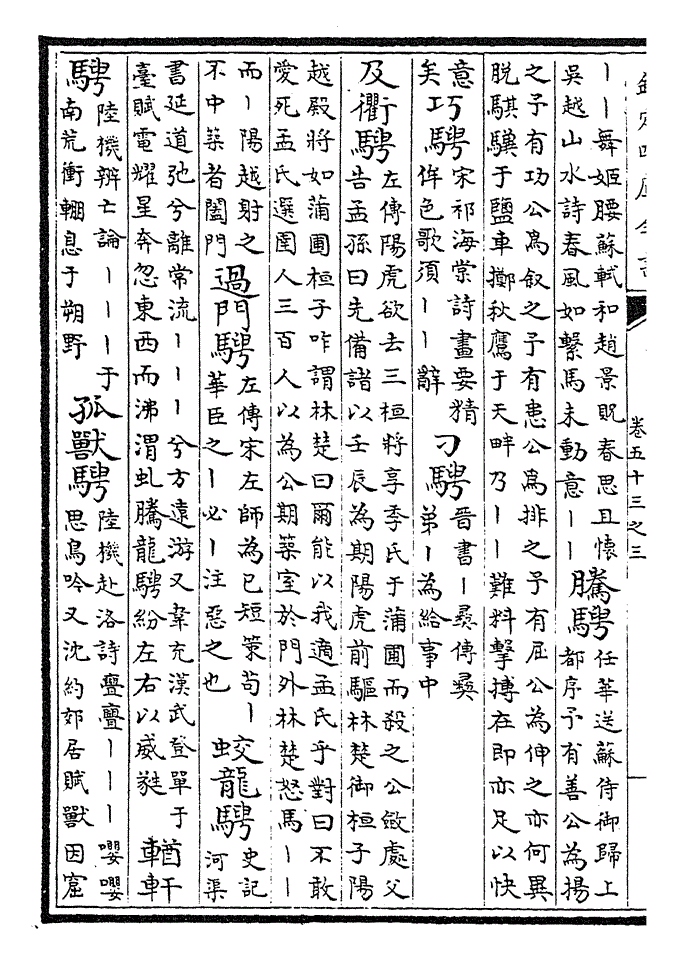 欽定四庫全書
卷五十三之三
丨丨舞姬腰蘇軾和趙景貺春思且懷
吳越山水詩春風如繫馬未動意丨丨
騰騁
任華送蘇侍御歸上
都序予有善公為揚
之予有功公為叙之予有患公為排之予有屈公為伸之亦何異
脫騏驥于鹽車擲秋鷹于天畔乃丨丨難料擊摶在即亦足以快
意
矣
巧騁
宋祁海棠詩畫要精
侔色歌須丨丨辭
刁騁
晉書丨彛傳彛
弟丨為給事中
及衢騁
左傳陽虎欲去三桓將享季氏于蒲圃而殺之公斂處父
告孟孫曰先備諸以壬辰為期陽虎前驅林楚御桓子陽
越殿將如蒲圃桓子咋謂林楚曰爾能以我適孟氏乎對曰不敢
愛死孟氏選圉人三百人以為公期築室於門外林楚怒馬丨丨
而丨陽越射之
不中築者闔門
過門騁
左傳宋左師為已短策苟丨
華臣之丨必丨注惡之也
蛟龍騁
史記
河渠
書延道弛兮離常流丨丨丨兮方遠游又韋充漢武登單于
臺賦電耀星奔忽東西而沸渭虬騰龍騁紛左右以威甤
輶軒
騁
陸機辨亡論丨丨丨丨于
南荒衝輣息于朔野
孤獸騁
陸機赴洛詩亹亹丨丨丨嚶嚶
思鳥吟又沈約郊居賦獸因窟